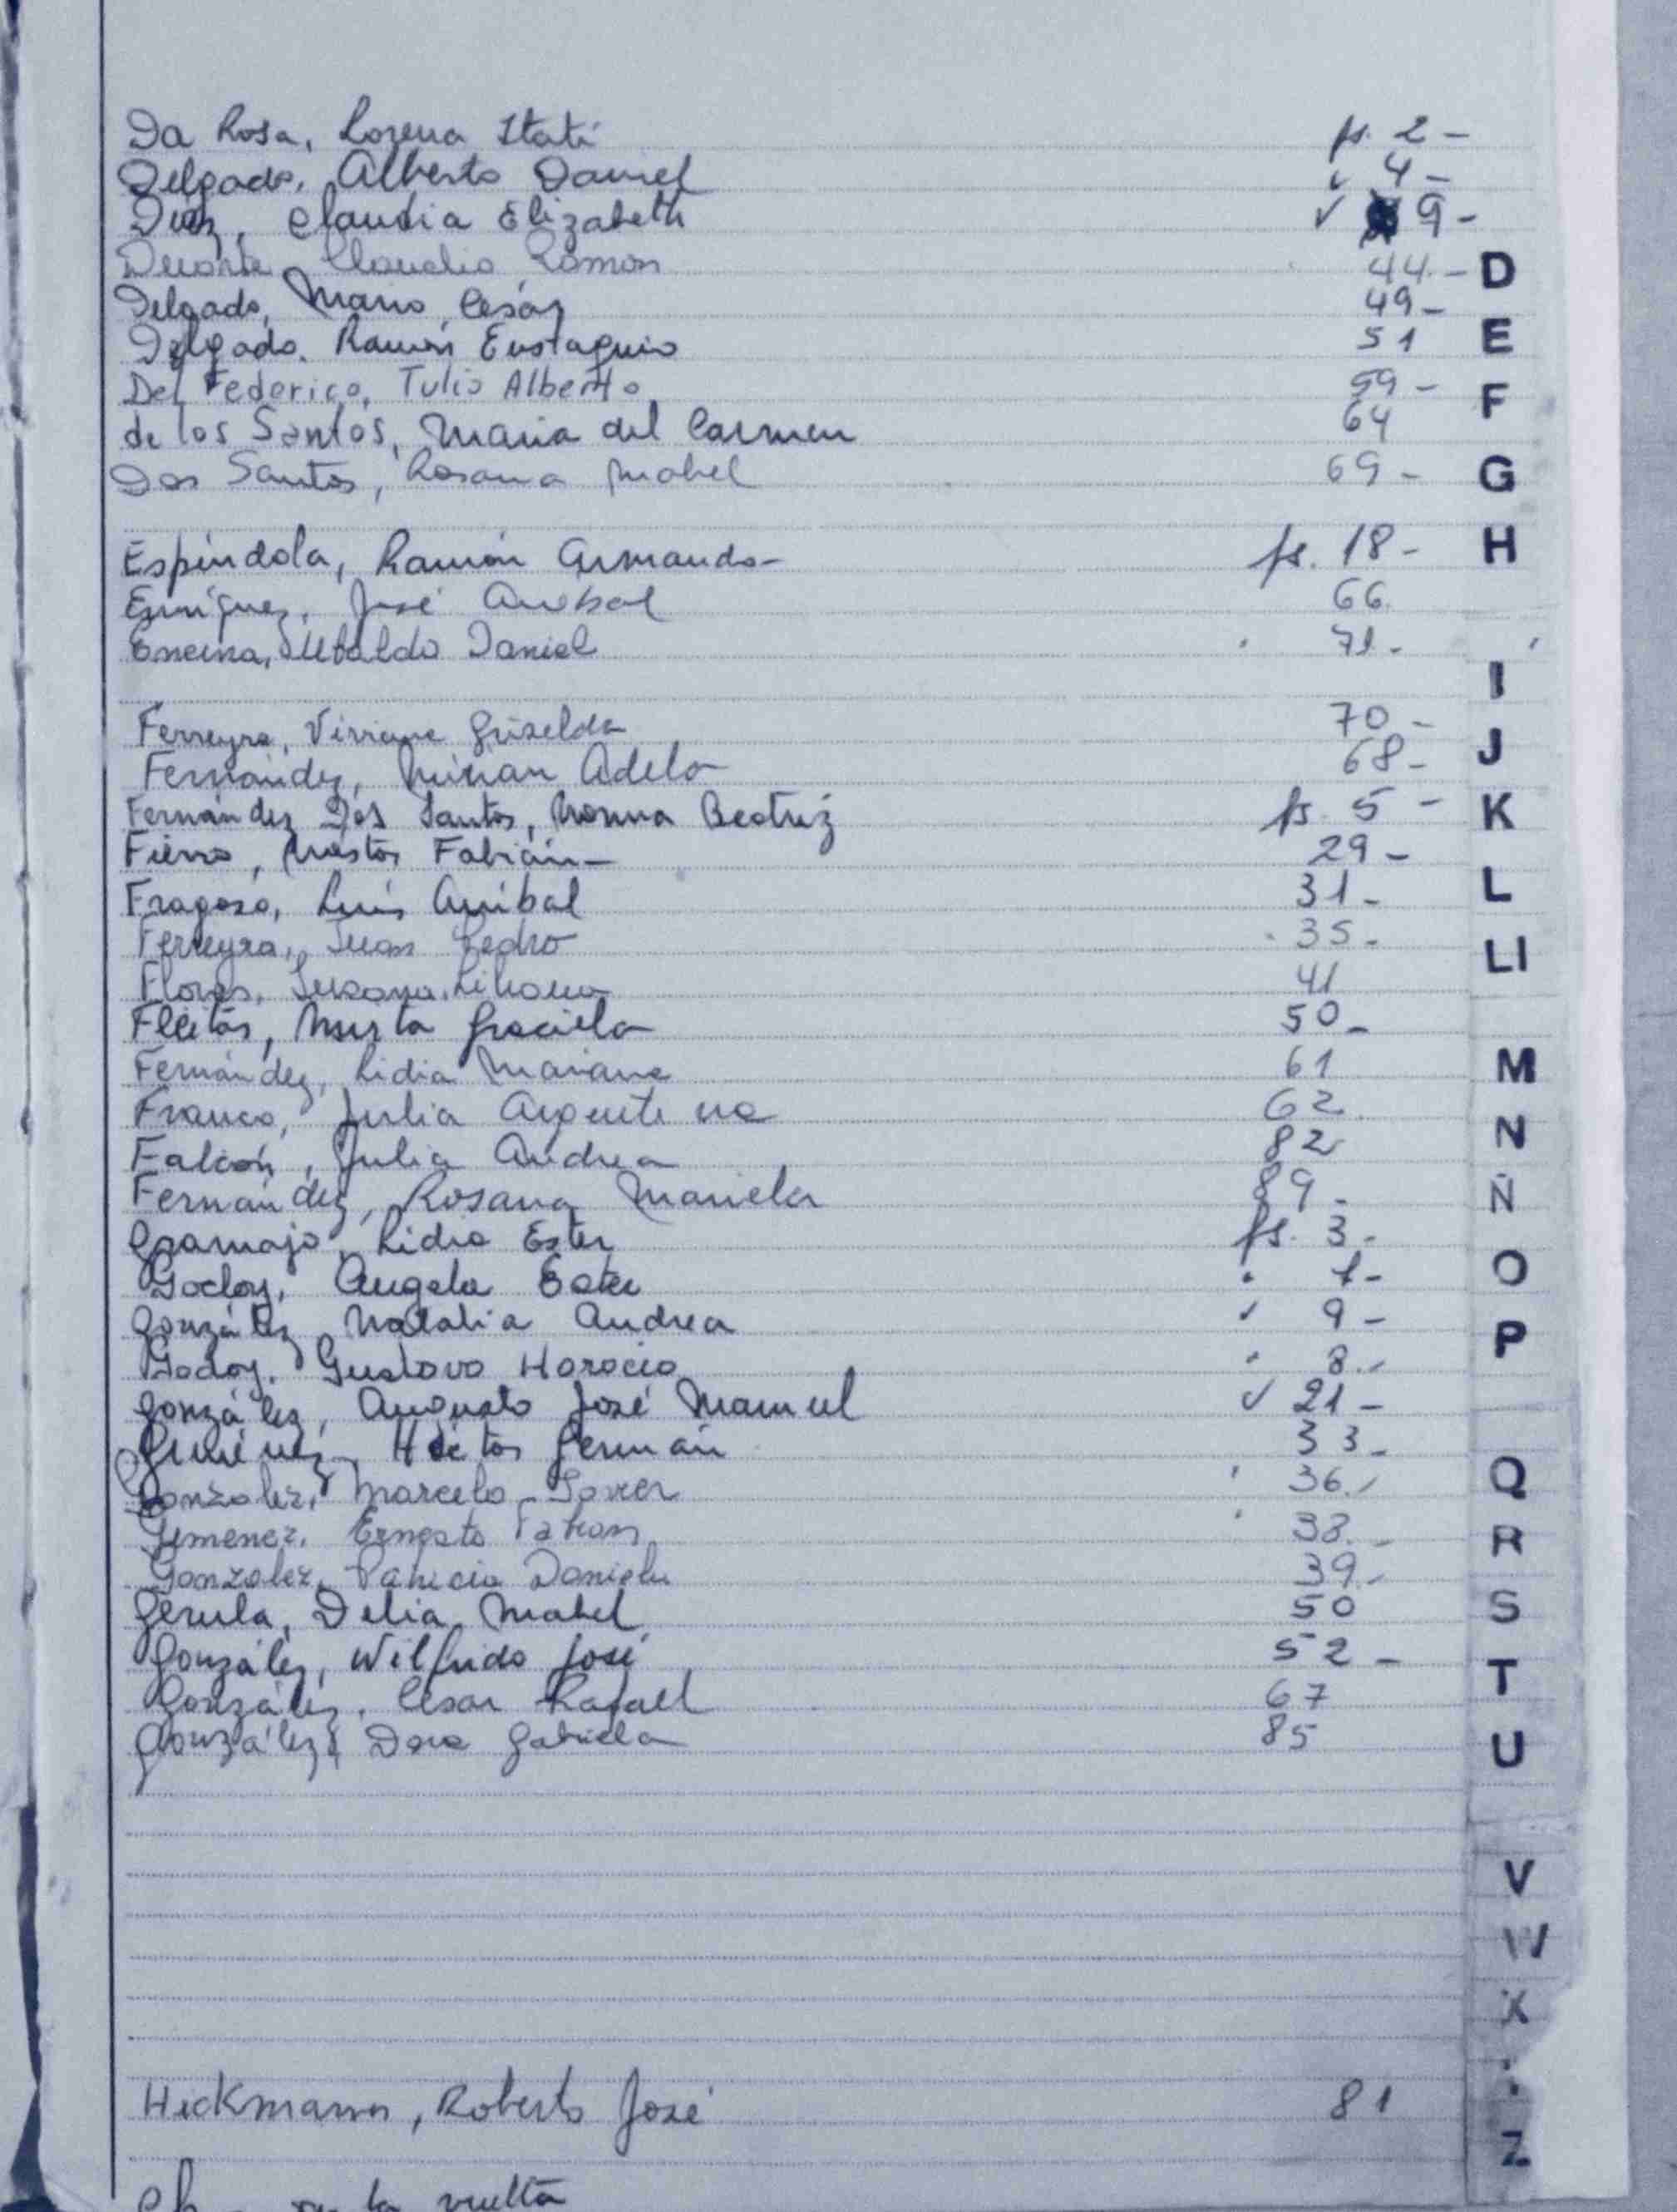 Da Rosa, Lorena Itatí fs. 2 -
Delgado, Alberto Daniel ✓ 4 -
Diaz, Claudia Elizabeth ✓ 9 -
Duarte Claudio Ramon 44 - D
Delgado, Mario César 49 -
Delgado, Ramón Eustaquio 51 E
Del Federico, Tulio Alberto 59 -
de los Santos, Maria del Carmen 64 F
Dos Santos, Rosana Mabel 69 - G
Espíndola, Ramón Armando - fs. 18 - H
Enríquez, José Anibal 66
Encina, Ubaldo Daniel 71 -
I
Ferreyra, Viviana Griselda 70 -
Fernández, Mirian Adela 68 - J
Fernández Dos Santos, Norma Beatriz fs. 5 - K
Fierro, Nestor Fabián - 29 -
Fragoso, Luis Anibal 31 - L
Ferreyra, Juan Pedro 35 -
LI
Flores, Susana Liliana 41
Fleitas, Mirta Graciela 50 -
Fernández, Lidia Mariana 61 M
Franco, Julia Argentina 62
Falcón, Julia Andrea 82 N
Fernández, Rosana Mariela 89 - Ñ
Gramajo, Lidia Ester fs. 3 -
Godoy, Angela Ester 7 - O
González, Natalia Andrea 9 -
Godoy, Gustavo Horacio 8 - P
González, Augusto José Manuel ✓ 21 -
Giménez, Héctor Germán 33 -
Gonzalez, Marcelo Javier 36 - Q
Gimenez, Ernesto Fabian 38 - R
Gonzalez, Patricia Daniela 39 -
Gerula, Delia Mabel 50 S
González, Wilfrido José 52 -
González, César Rafael 67 T
González, Dora Gabriela 85 U
V
W
X
Hickmann, Roberto José 81
Z
a la vuelta